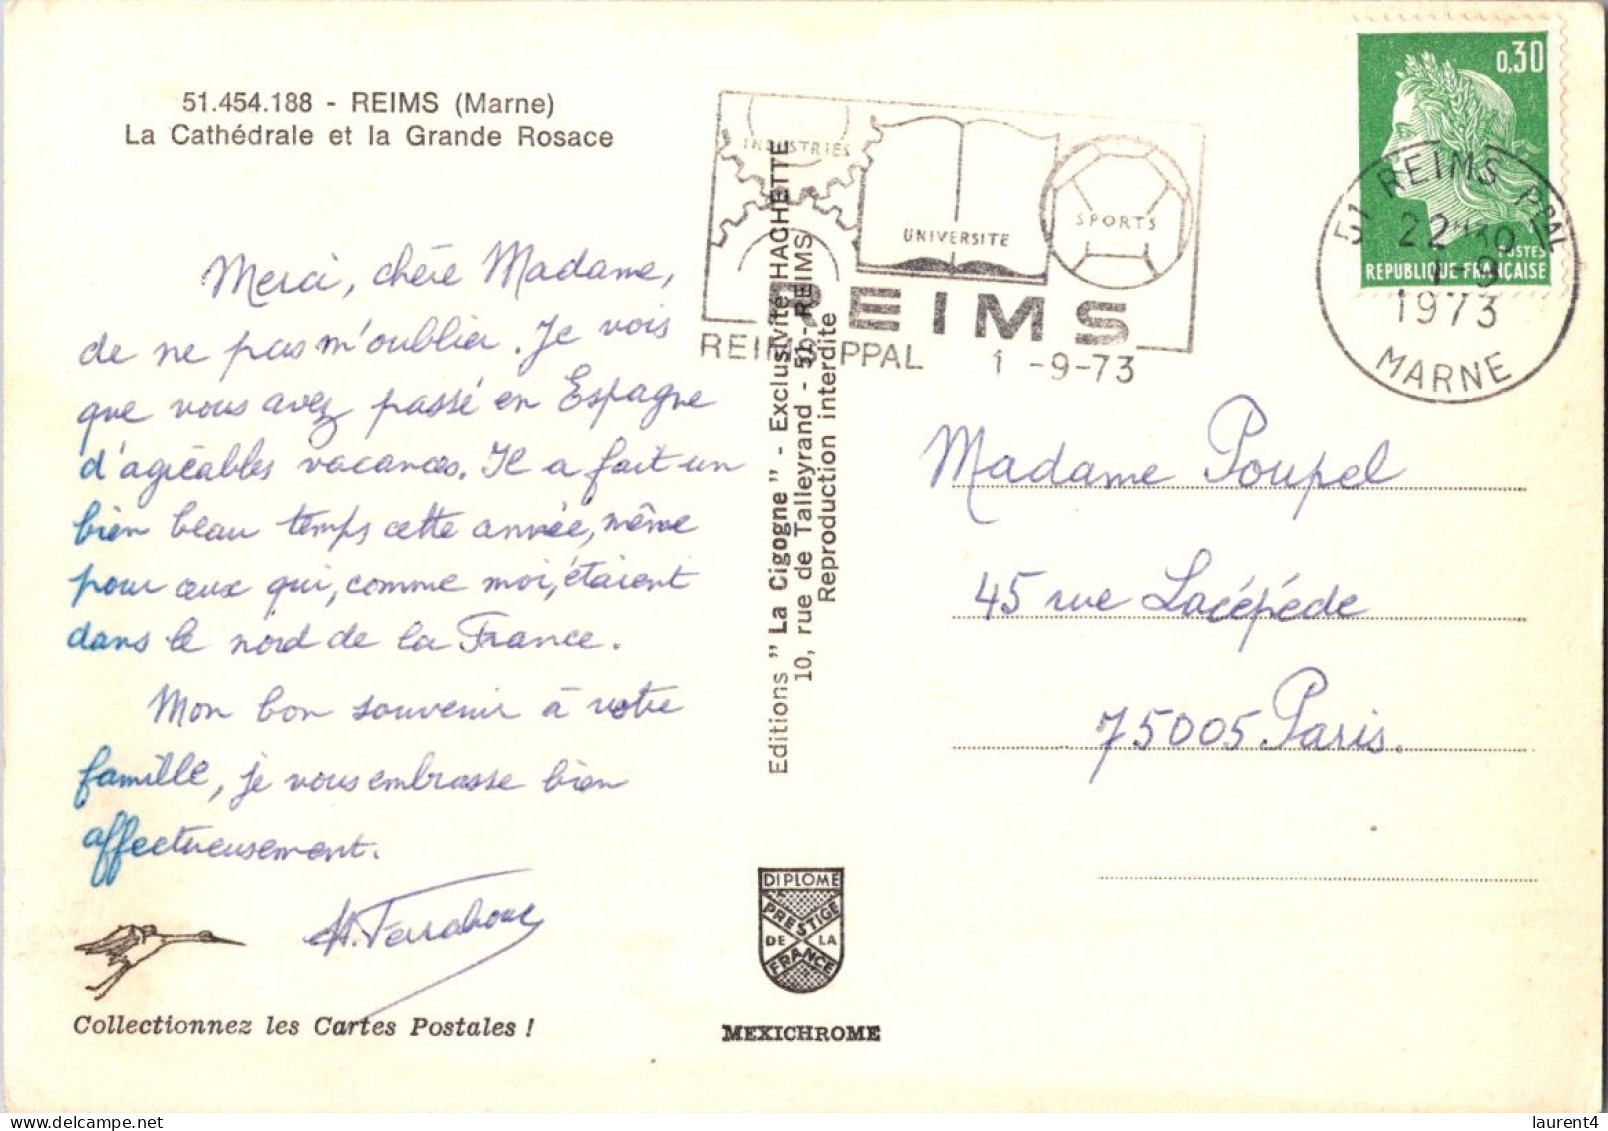 51.454.188 - REIMS (Marne)
La Cathédrale et la Grande Rosace
Merci, chère Madame,
de ne pas m'oublier. Je vois
que vous avez passé en Espagne
d'agréables vacances. Il a fait un
bien beau temps cette année, même
pour ceux qui, comme moi, étaient
dans le nord de la France.
Mon bon souvenir à votre
famille, je vous embrasse bien
affectueusement.
Collectionnez les Cartes Postales !
Editions " La Cigogne " - Exclusivité HACHETTE
10, rue de Talleyrand - 51 - REIMS
Reproduction interdite
DIPLOME
PRESTIGE
DE LA
FRANCE
MEXICHROME
INDUSTRIES
UNIVERSITE
SPORTS
REIMS
REIMS PPAL 1 -9-73
0,30
POSTES
REPUBLIQUE FRANÇAISE
51 REIMS PPAL
22H30
1-9
1973
MARNE
Madame Poupel
45 rue Lacépède
75005 Paris.
laurent4